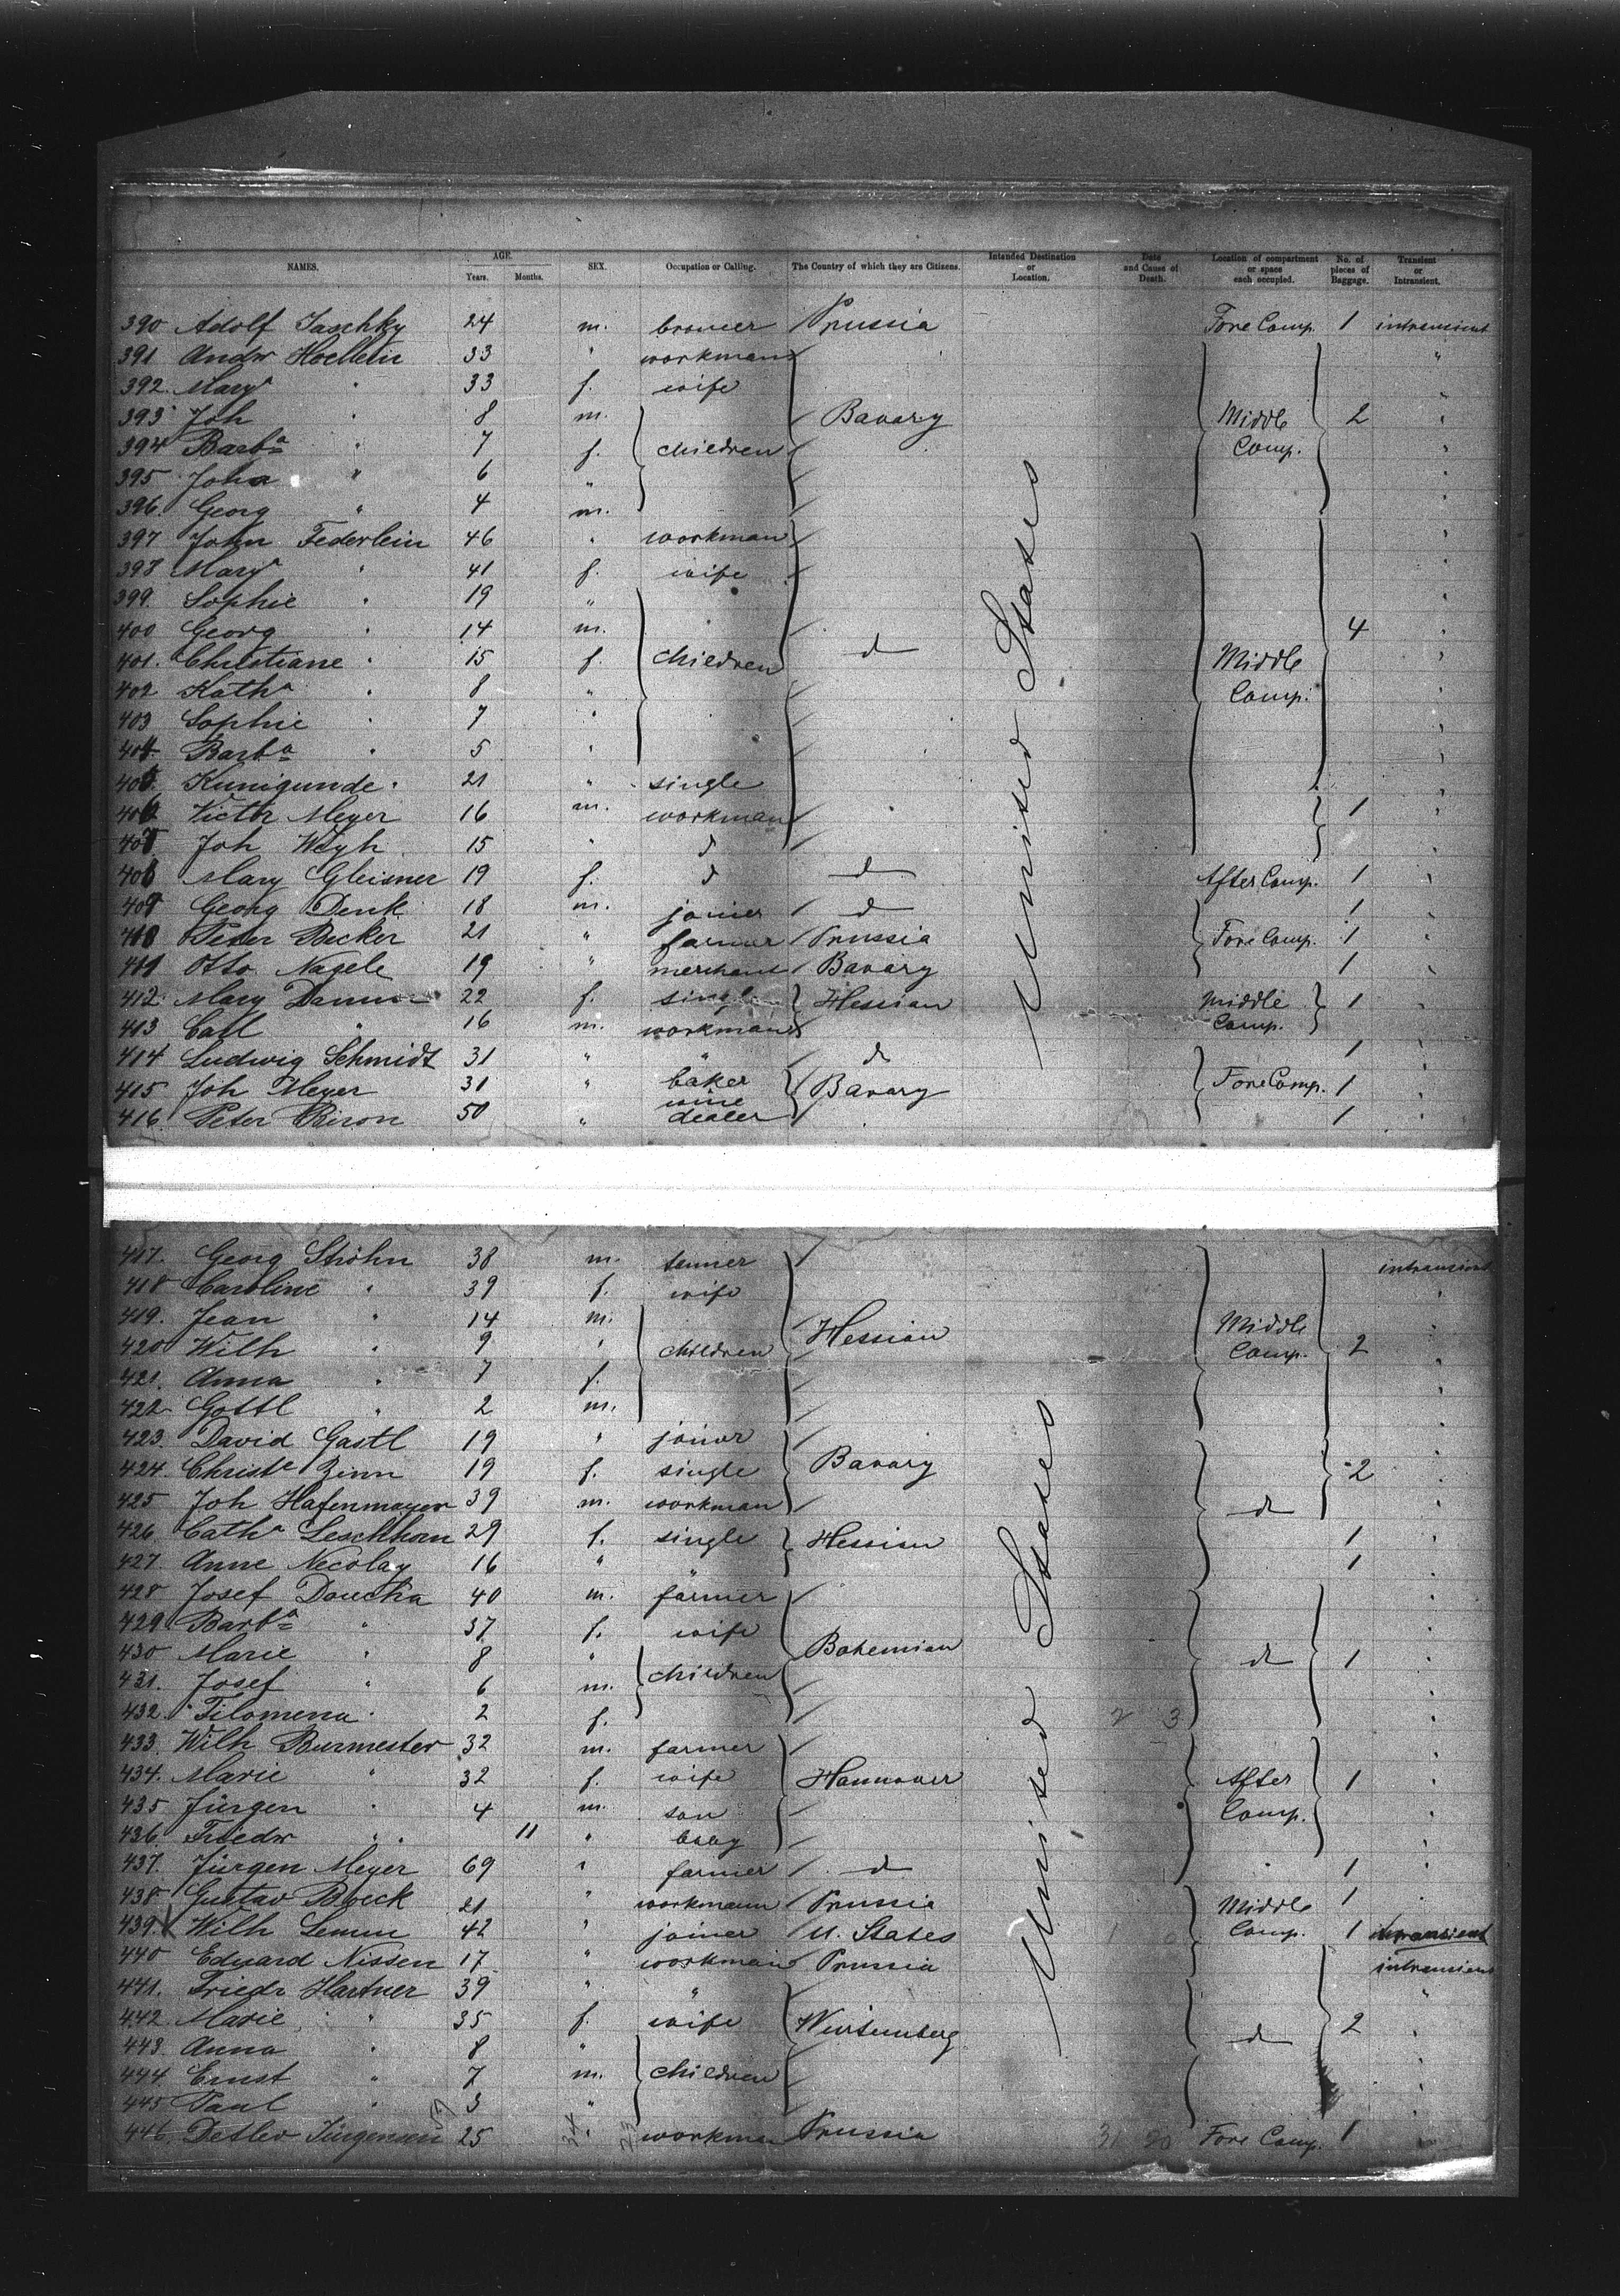 NAMES. AGE. Years. Months. SEX. Occupation or Calling. The Country of which they are Citizens. Intended Destination or Location. Date and Cause of Death. Location of compartment or space each occupied. No. of pieces of Baggage. Transient or Intransient.
390 Adolf Jaschky 24 m. brower Prussia Fore Comp. 1 intransient
391 Andr Hoellein 33 " workman "
392. Mary " 33 f. wife "
393 Joh " 8 m. Bavary Middle 2 "
394 Barba " 7 f. children Comp. "
395 Joha " 6 " "
396. Georg " 4 m. "
397 John Federlein 46 " workman "
398 Mary " 41 f. wife "
399. Sophie " 19 " "
400 Georg " 14 m. 4 "
401. Christiane " 15 f. children d Middle "
402 Katha " 8 " Comp. "
403 Sophie " 7 " "
404 Barba " 5 " "
405. Kunigunde " 21 " single "
406 Victor Meyer 16 m. workman 1 "
407 Joh Weyh 15 " d "
408 Mary Gleisner 19 f. d d After Comp. 1 "
409 Georg Denk 18 m. joiner d 1 "
410 Peter Becker 21 " farmer Prussia Fore Comp. 1 "
411 Otto Nagele 19 " merchant Bavary 1 "
412. Mary Damm 22 f. single Hessian Middle 1 "
413 Carl " 16 m. workman Comp. "
414 Ludwig Schmidt 31 " " d 1 "
415 Joh Meyer 31 " baker Bavary Fore Comp. 1 "
416 Peter Biron 50 " wine dealer 1 "
United States
417. Georg Ströhn 38 m. tanner intransient
418 Caroline " 39 f. wife "
419. Jean " 14 m. Middle "
420 Wilh " 9 " children Hessian Comp. 2 "
421. Anna " 7 f. "
422 Gottl " 2 m. "
423. David Gastl 19 " joiner "
424. Christe Zinn 19 f. single Bavary 2 "
425 Joh Hafenmayer 39 m. workman d "
426. Catha Leschhorn 29 f. single Hessian 1 "
427. Anne Necolay 16 " " 1 "
428 Josef Doucha 40 m. farmer "
429 Barba " 37 f. wife "
430 Marie " 8 " children Bohemian d 1 "
431. Josef " 6 m. "
432. Filomena " 2 f. 2 3 "
433. Wilh Burmester 32 m. farmer "
434. Marie " 32 f. wife Hannover After 1 "
435 Jürgen " 4 m. son Comp. "
436. Friedr " 11 " baby "
437. Jürgen Meyer 69 " farmer d " 1 "
438 Gustav Boeck 21 " workmann Prussia Middle 1 "
439. Wilh Lemm 42 " joiner U. States Comp. 1
440 Eduard Nissen 17 " workman Prussia intransient
441. Friedr Hartner 39 " " "
442. Marie " 35 f. wife Wurtemberg d 2 "
443. Anna " 8 " "
444 Ernst " 7 m. children "
445 Paul " 3 " "
446. Detlev Jürgensen 25 " workman Prussia 31 20 Fore Comp. 1 "
United States